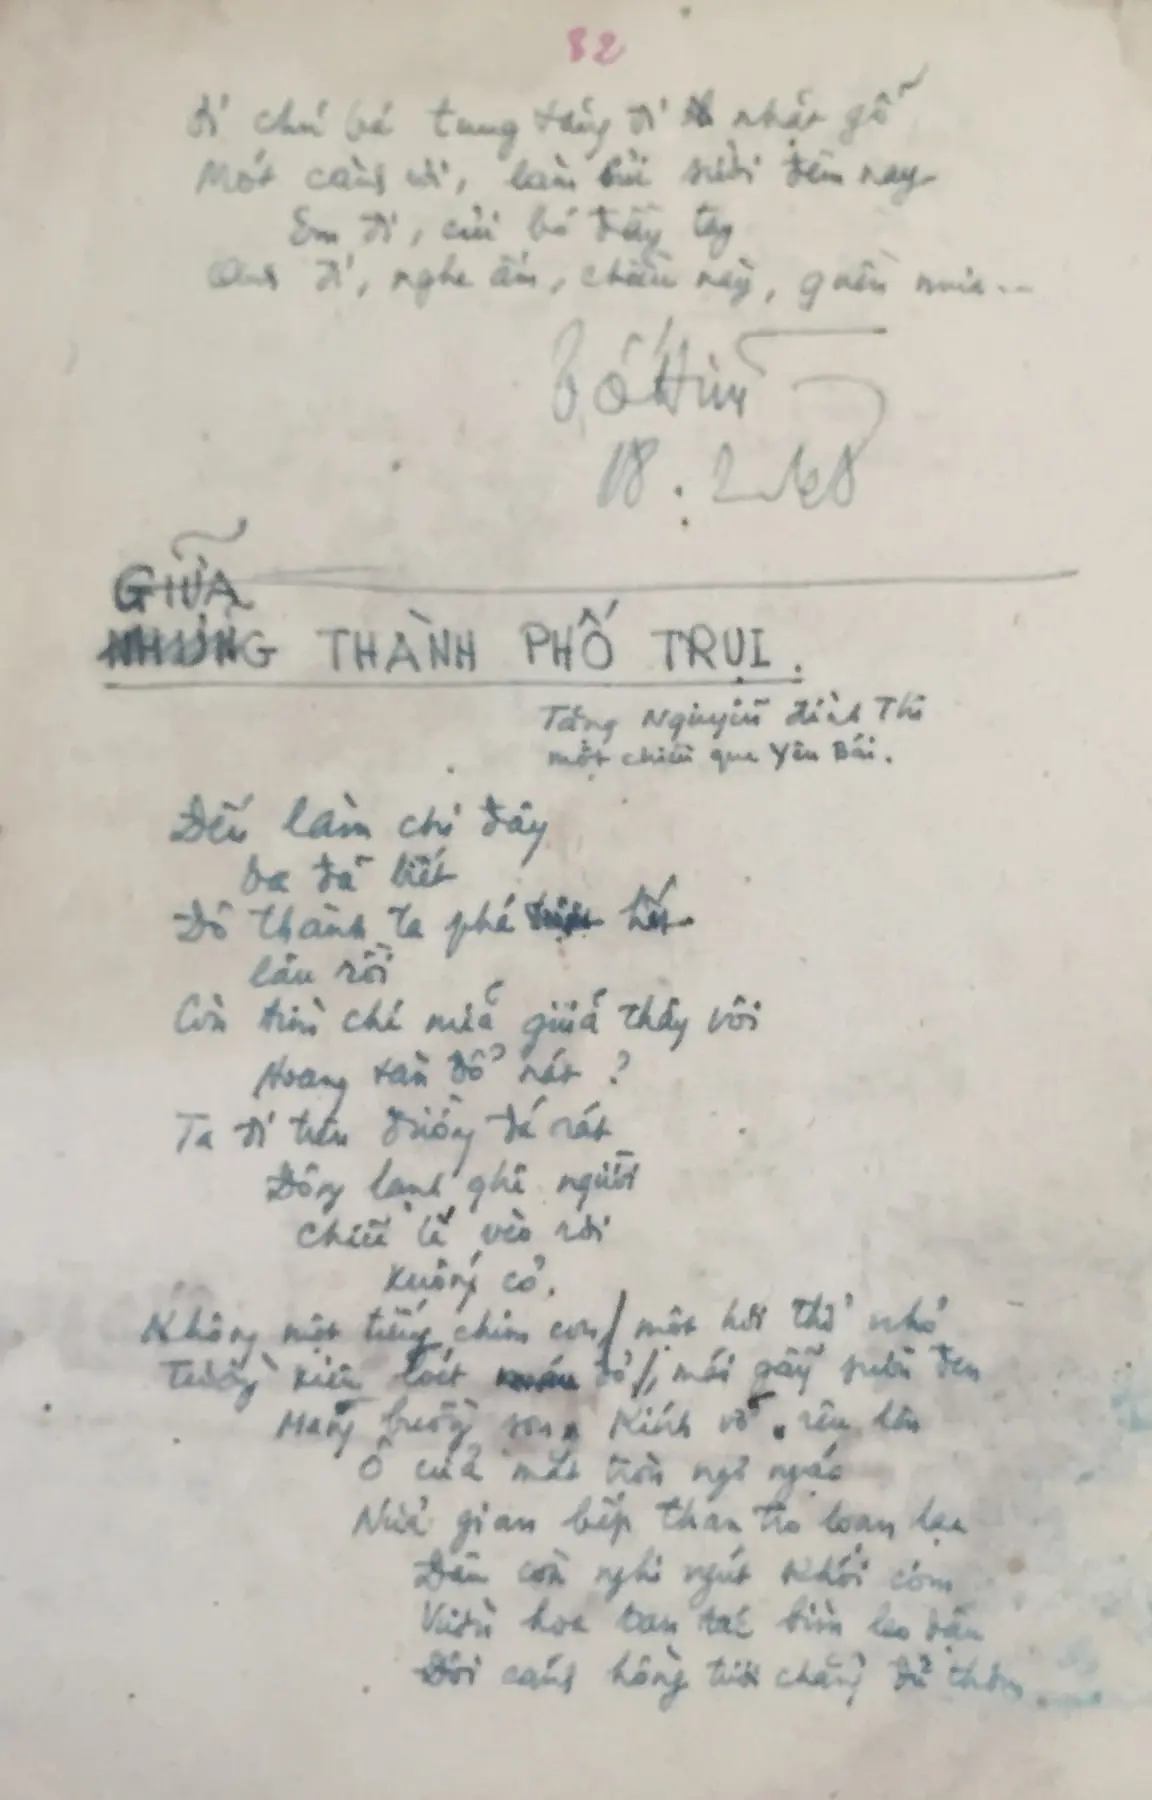 82
đi chú bé tung tăng đi nhặt gỗ
Một cành rơi, làm củi sưởi đêm nay
Em đi, củi bó đầy tay
Anh đi, nghe ấm, chiều này, quên mưa...
Tố Hữu
18.2.48
GIỮA
NHỮNG THÀNH PHỐ TRỤI.
Tặng Nguyễn đình Thi
một chiều qua Yên Bái.
Đến làm chi đây
Đã biết
Đô thành ta phá hết
lâu rồi
Còn tìm chi nữa giữa thây vôi
Hoang tàn đổ nát?
Ta đi trên đường đá rát
Đông lạnh ghê người
Chiều lẻ vèo rơi
Xuống cỏ.
Không một tiếng chim con / một hơi thở nhỏ
Tường xiên loét đỏ /, mái gãy sườn đen
Mảng buồng son, kính vỡ, rêu lên
Ô cửa mắt tròn ngơ ngác
Nửa gian bếp than tro loạn lạc
Đâu còn nghi ngút khói cơm
Vườn hoa tan tác bìm leo dậu
Đôi cánh hồng tươi chẳng đủ thơm